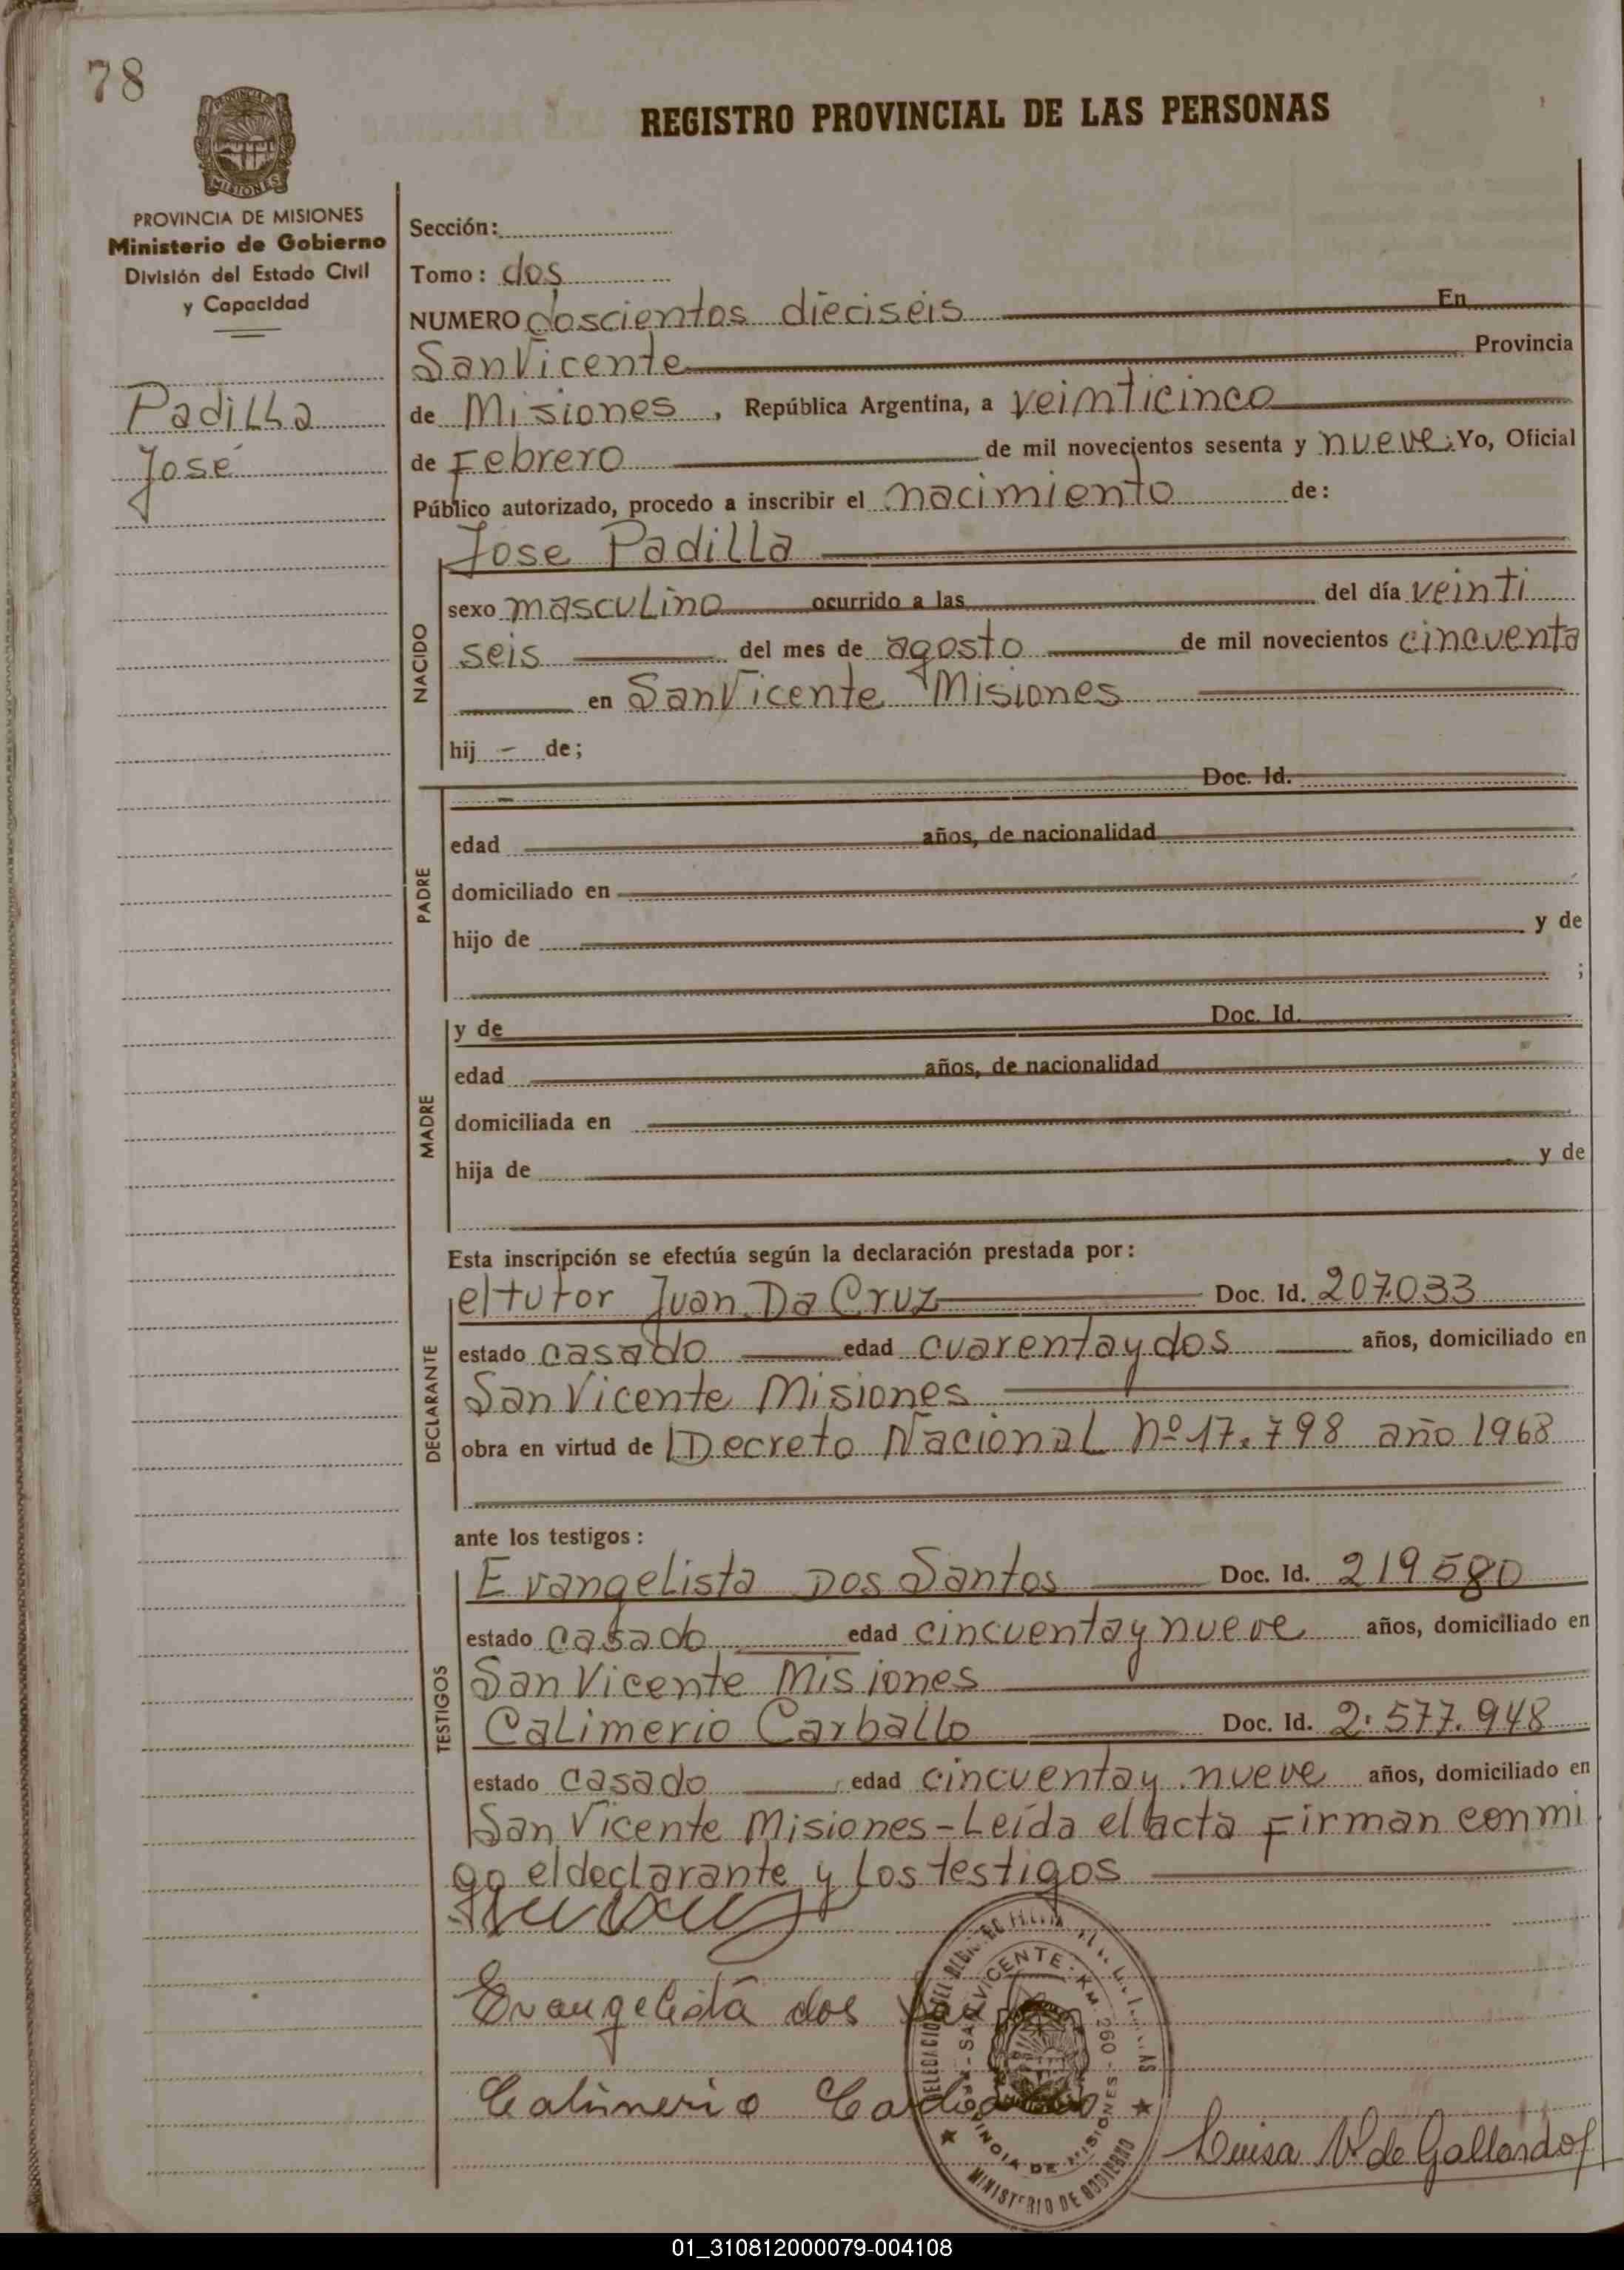 78
REGISTRO PROVINCIAL DE LAS PERSONAS
MISIONES
PROVINCIA DE MISIONES
Ministerio de Gobierno
División del Estado Civil
y Capacidad
Padilla
José
Sección:
Tomo: dos
NUMERO doscientos dieciseis En
San Vicente Provincia
de Misiones, República Argentina, a veinticinco
de Febrero de mil novecientos sesenta y nueve. Yo, Oficial
Público autorizado, procedo a inscribir el nacimiento de:
NACIDO
Jose Padilla
sexo masculino ocurrido a las del día veinti
seis del mes de agosto de mil novecientos cincuenta
en San Vicente Misiones
hij - de;
PADRE
Doc. Id.
edad años, de nacionalidad
domiciliado en
hijo de y de
;
MADRE
y de Doc. Id.
edad años, de nacionalidad
domiciliada en
hija de y de
Esta inscripción se efectúa según la declaración prestada por:
DECLARANTE
el tutor Juan Da Cruz Doc. Id. 207.033
estado casado edad cuarenta y dos años, domiciliado en
San Vicente Misiones
obra en virtud de Decreto Nacional nº 17.798 año 1968
ante los testigos:
TESTIGOS
Evangelista Dos Santos Doc. Id. 219580
estado casado edad cincuenta y nueve años, domiciliado en
San Vicente Misiones
Calimerio Carballo Doc. Id. 2.577.948
estado casado edad cincuenta y nueve años, domiciliado en
San Vicente Misiones - Leída el acta Firman conmi
go el declarante y los testigos
Evangelista dos
SAN VICENTE - KM. 260 -
PROVINCIA DE MISIONES
MINISTERIO DE GOBIERNO
Calimerio
Luisa V. de Gallardo
01_310812000079-004108